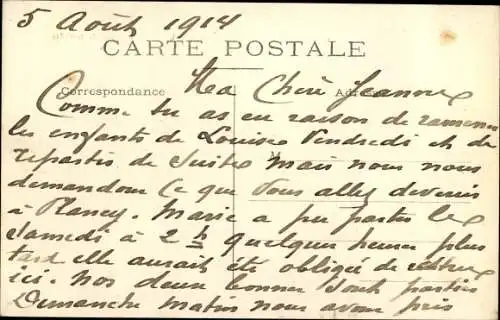 5 Août 1914
CARTE POSTALE
Correspondance
Ma Chère Jeanne
Comme tu as eu raison de ramener
les enfants de Louise Vendredi et de
repartir de suite Mais nous nous
demandons ce que vous allez devenir
à Plancy. Marie a pu partir le
Samedi à 2 h quelques heures plus
tard elle aurait été obligée de
ici. nos deux bonnes sont parties
Dimanche matin nous avons pris